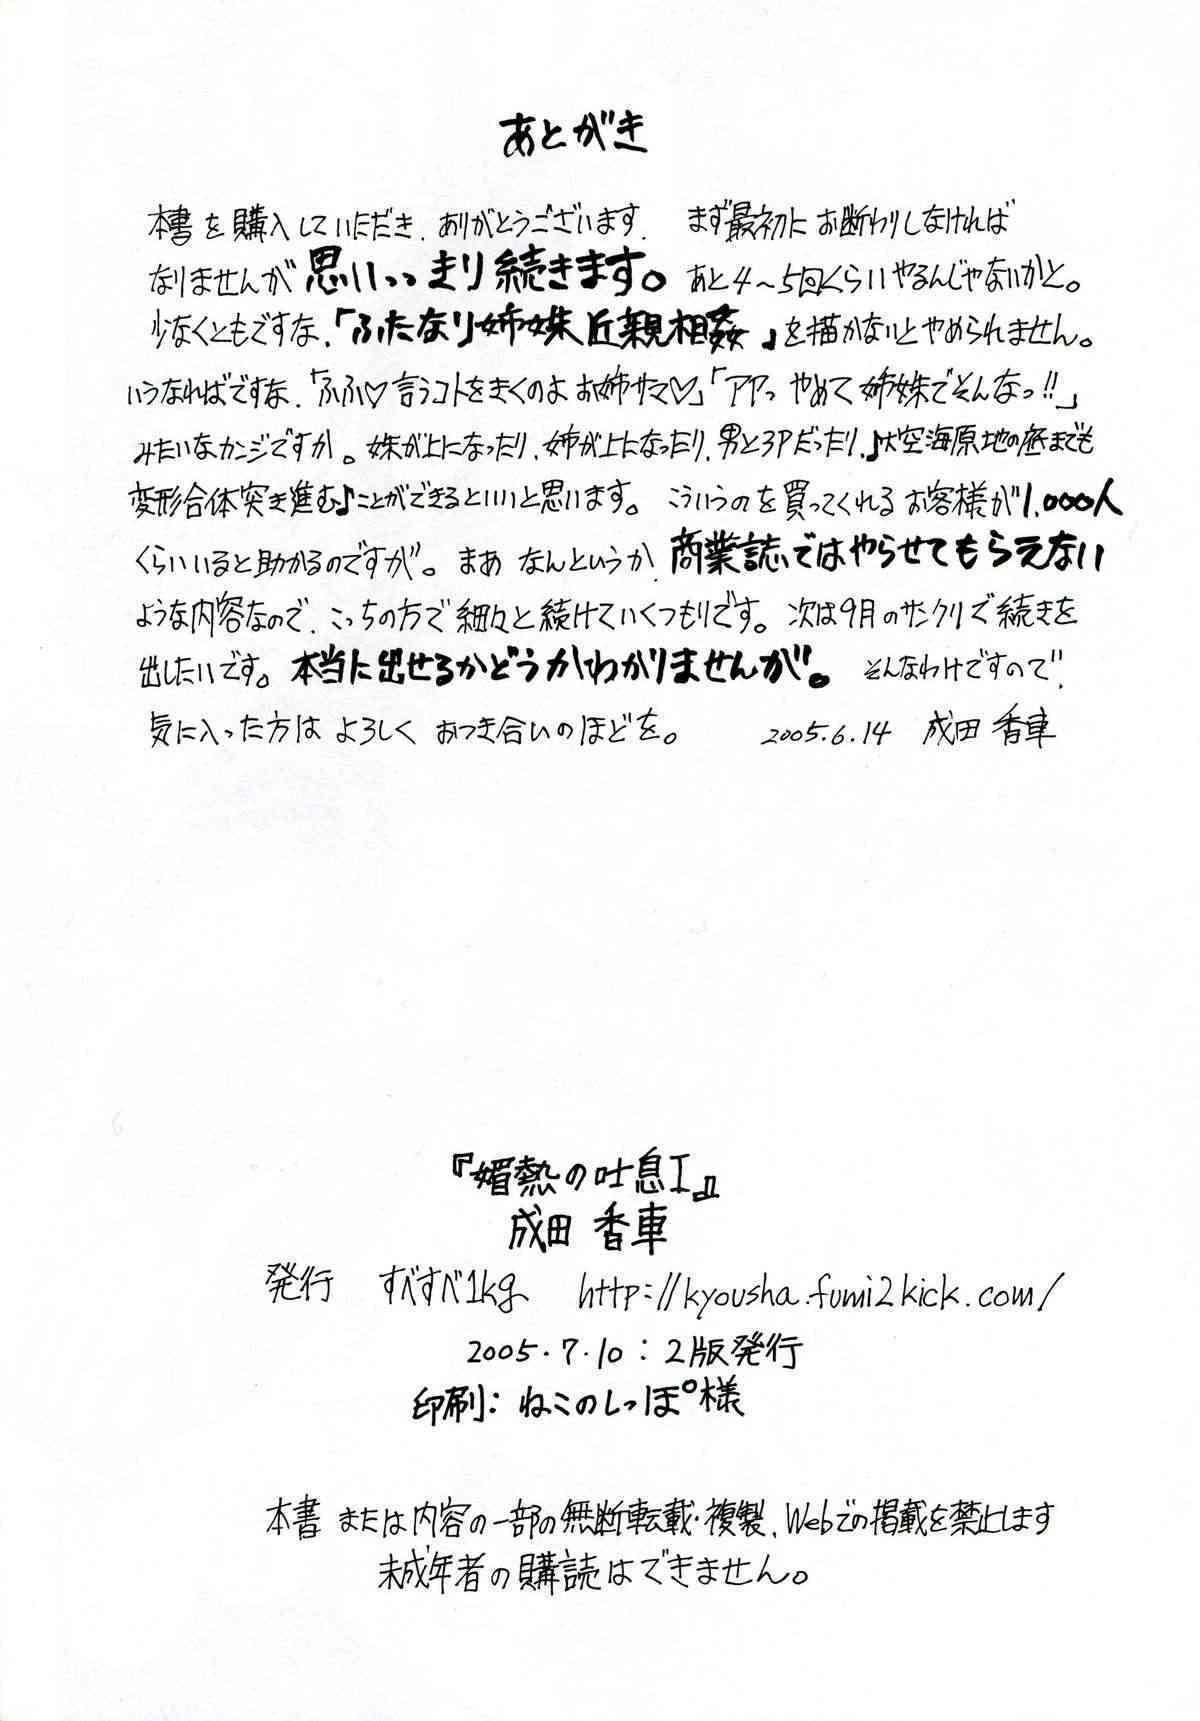 あとがき
本書を購入していただき、ありがとうございます。 まず最初にお断わりしなければ
なりませんが思いっっまり続きます。あと4〜5回くらいやるんじゃないかと。
少なくともですな、「ふたなり姉妹近親相姦」を描かないとやめられません。
いうなればですな、「ふふ♡言うコトをきくのよ お姉サマ♡」「アヤっ やめて 姉妹でそんなっ!!」
みたいなカンジですか。妹が上になったり、姉が上になったり、男と3Pだったり、♪大空海原地の底までも
変形合体突き進む♪ことができるといいと思います。 こういうのを買ってくれるお客様が1,000人
くらいいると助かるのですが。まあ なんというか、商業誌ではやらせてもらえない
ような内容なので、こっちの方で細々と続けていくつもりです。次は9月のサンクリで続きを
出したいです。本当に出せるかどうかわかりませんが。 そんなわけですので、
気に入った方は よろしく おつき合いのほどを。 2005.6.14 成田 香車
『媚熱の吐息I』
成田 香車
発行 すべすべ1kg http://kyousha.fumi2kick.com/
2005.7.10:2版発行
印刷:ねこのしっぽ様
本書または内容の一部の無断転載・複製、Webでの掲載を禁止します
未成年者の購読はできません。